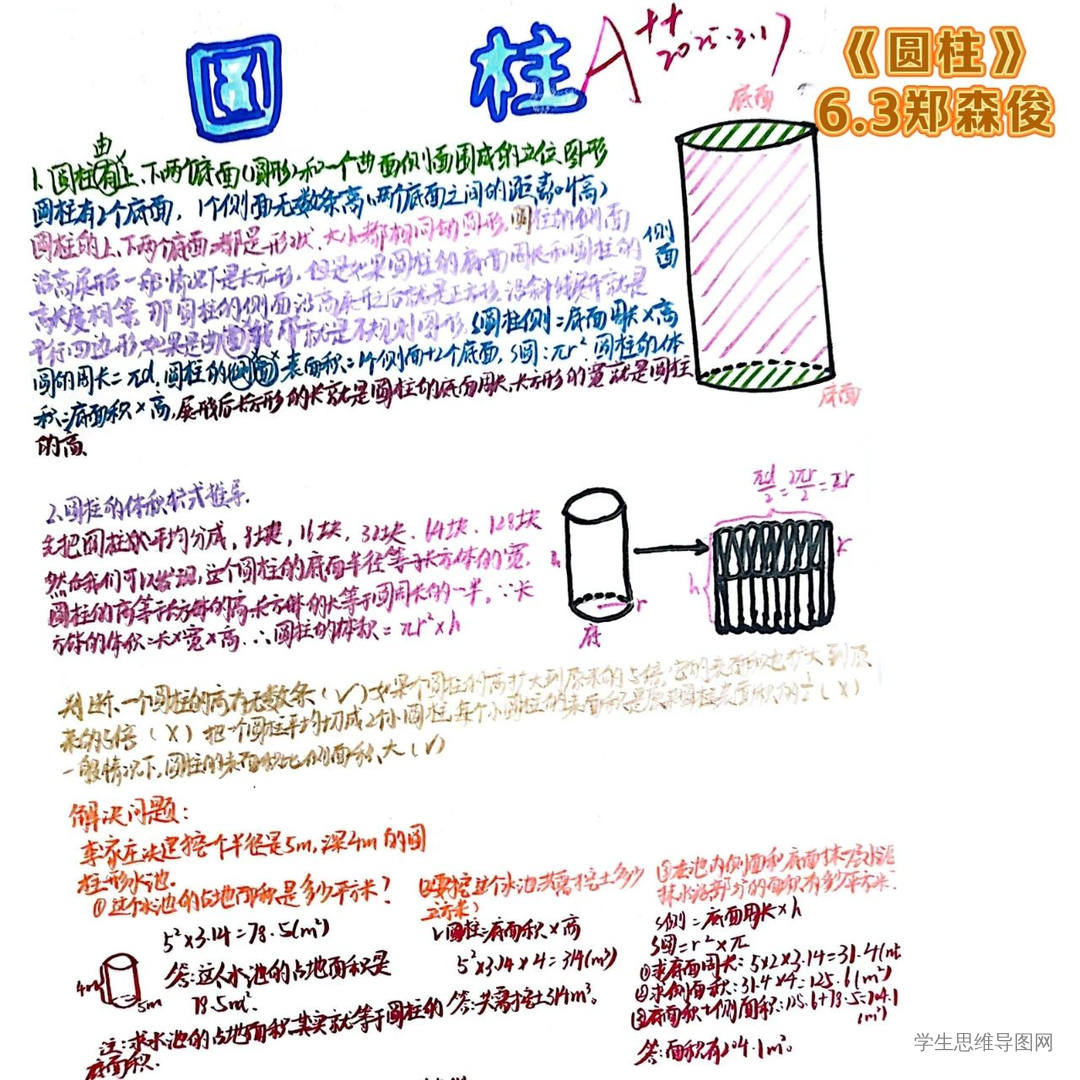 圆 柱
A++
2025.3.17
《圆柱》
6.3郑森俊
底面
由
1、圆柱有上、下两个底面(圆形)和一个曲面侧面围成的立位图形
圆柱有2个底面,1个侧面无数条高(两个底面之间的距离叫高)
圆柱的上、下两个底面都是形状、大小都相同的圆形,圆柱的侧面
沿高展开后一般情况下是长方形,但是如果圆柱的底面周长和圆柱的
高长度相等,那圆柱的侧面沿高展开之后就是正方形,沿斜线展开就是
平行四边形,如果是曲 就是不规则图形,S圆柱侧=底面周长×高
圆的周长=πd,圆柱的侧面 表面积=1个侧面+2个底面,S圆:πr²,圆柱的体
积=底面积×高,展形后长方形的长就是圆柱的底面周长,长方形的宽就是圆柱
的高、
侧
面
底面
2、圆柱的体积公式推导、
先把圆柱 平均分成,8块,16块,32块,64块、128块
然后我们可以发现,这个圆柱的底面半径等于长方体的宽,
圆柱的高等于长方体的高,长方体的长等于圆周长的一半,∵长
方体的体积=长×宽×高,∴圆柱的体积=πr²×h
h
r
底
πd/2=2πr/2=πr
h
r
判断、一个圆柱的高有无数条(√)如果个圆柱的高扩大到原来的5倍,它的表面积也扩大到原
来的5倍(×)把一个圆柱平均切成2个小圆柱,每个小圆柱的表面积是原来圆柱表面积的½(×)
一般情况下,圆柱的表面积比侧面积大(√)
解决问题:
李家庄决定挖个半径是5m,深4m的圆
柱形水池.
①这个水池的占地面积是多少平方米?
5²×3.14=78.5(m²)
答:这个水池的占地面积是
78.5m².
4m
5m
注:求水池的占地面积其实就等于圆柱的
底面积.
②要挖这个水池共需挖土多少
立方米?
V圆柱=底面积×高
5²×3.14×4=314(m³)
答:共需挖土314m³。
③在池内侧面和底面抹一层水泥
抹水泥部分的面积有多少平方米.
S侧=底面周长×h
S圆=r²×π
①求底面周长:5×2×3.14=31.4(m
②求侧面积:31.4×4=125.6(m²)
③底面积+侧面积:125.6+78.5=204.1
(m²)
答:面积有204.1m²。
学生思维导图网